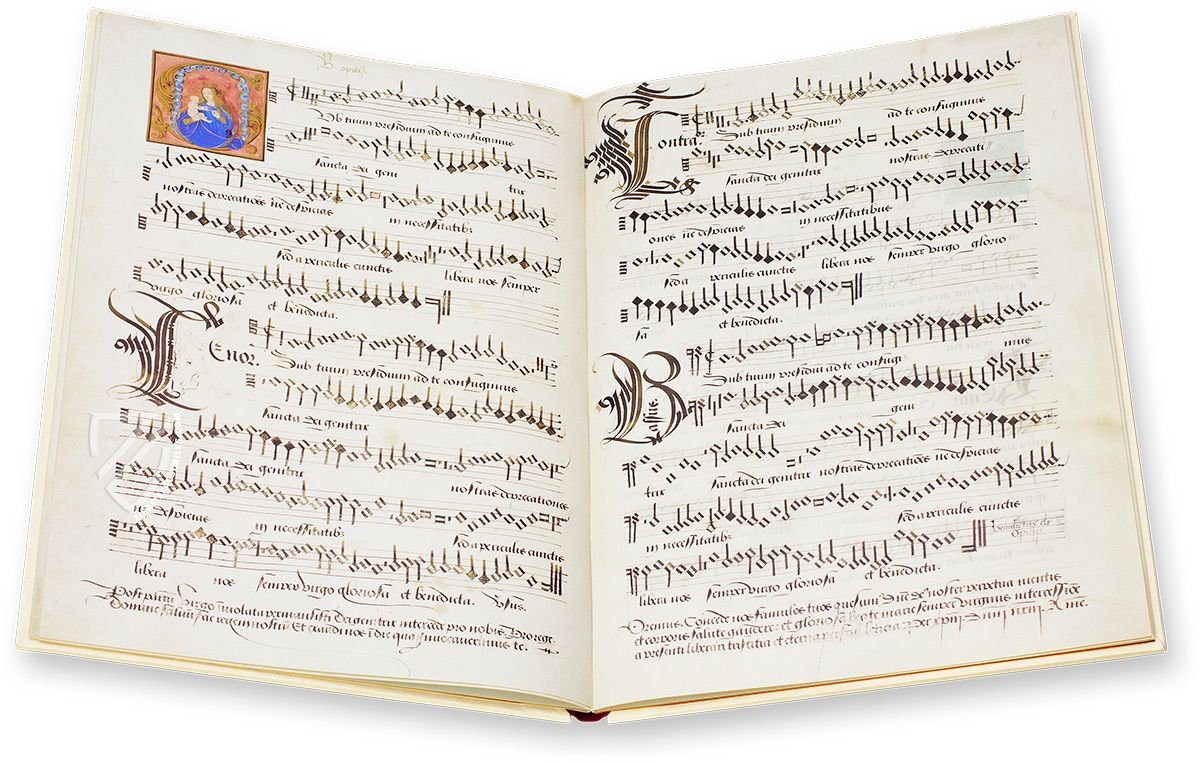 B. opicijs
Sub tuum presidium ad te confugimus
sancta dei geni trix
nostras deprecationes ne despicias in necessitatib;
sed a periculis cunctis libera nos semper
virgo gloriosa et benedicta.
Tenor. Sub tuum presidium ad te confugimus
sancta dei genitrix
sancta dei genitrix nostras deprecationes
ne despicias in necessitatib; sed a periculis cunctis
libera nos semper virgo gloriosa et benedicta. Vsus.
Post partu virgo inviolata permansisti dei genitrix intercede pro nobis
Domine salvu fac regem nostru Et exaudi nos i die qua invocaverimus te.
Contra. Sub tuum presidium ad te confugimus
sancta dei genitrix nostras deprecati
ones ne despicias in necessitatibus
sed a periculis cunctis libera nos semper virgo glorio
sa et benedicta.
Bassus. Sub tuum presidiu ad te confugi mus
sancta dei geni
trix sancta dei genitrix nostras deprecationes ne despicias
in necessitatib; sed a periculis cunctis
Benedictus de Opicijs
libera nos semper virgo gloriosa et benedicta.
Oremus. Concede nos famulos tuos quesum dne de nostre perpetua mentis
et corporis salute gaudere: et gloriosa beate marie semper virginis intercessioe
a presenti liberari tristitia et eterna